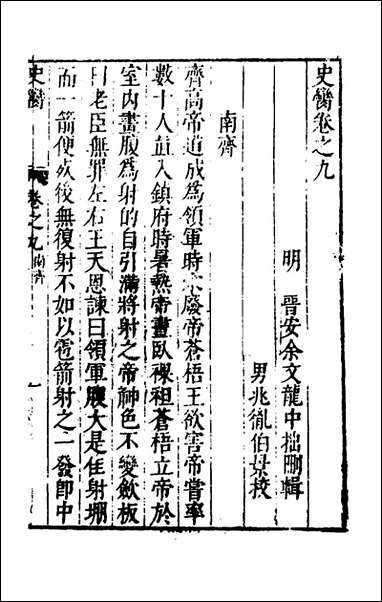 史臠卷之九
明　晉安余文龍中拙刪輯
男兆胤伯景校
南齊
齊高帝道成為領軍時宋廢帝蒼梧王欲害帝嘗率
數十人直入鎮府時暑熱帝晝臥裸袒蒼梧立帝於
室內畫腹為射的自引滿將射之帝神色不變斂板
曰老臣無罪左右王天恩諫曰領軍腹大是佳射堋
而一箭便死後無復射不如以雹箭射之一發即中
史臠
卷之九
南齊
一